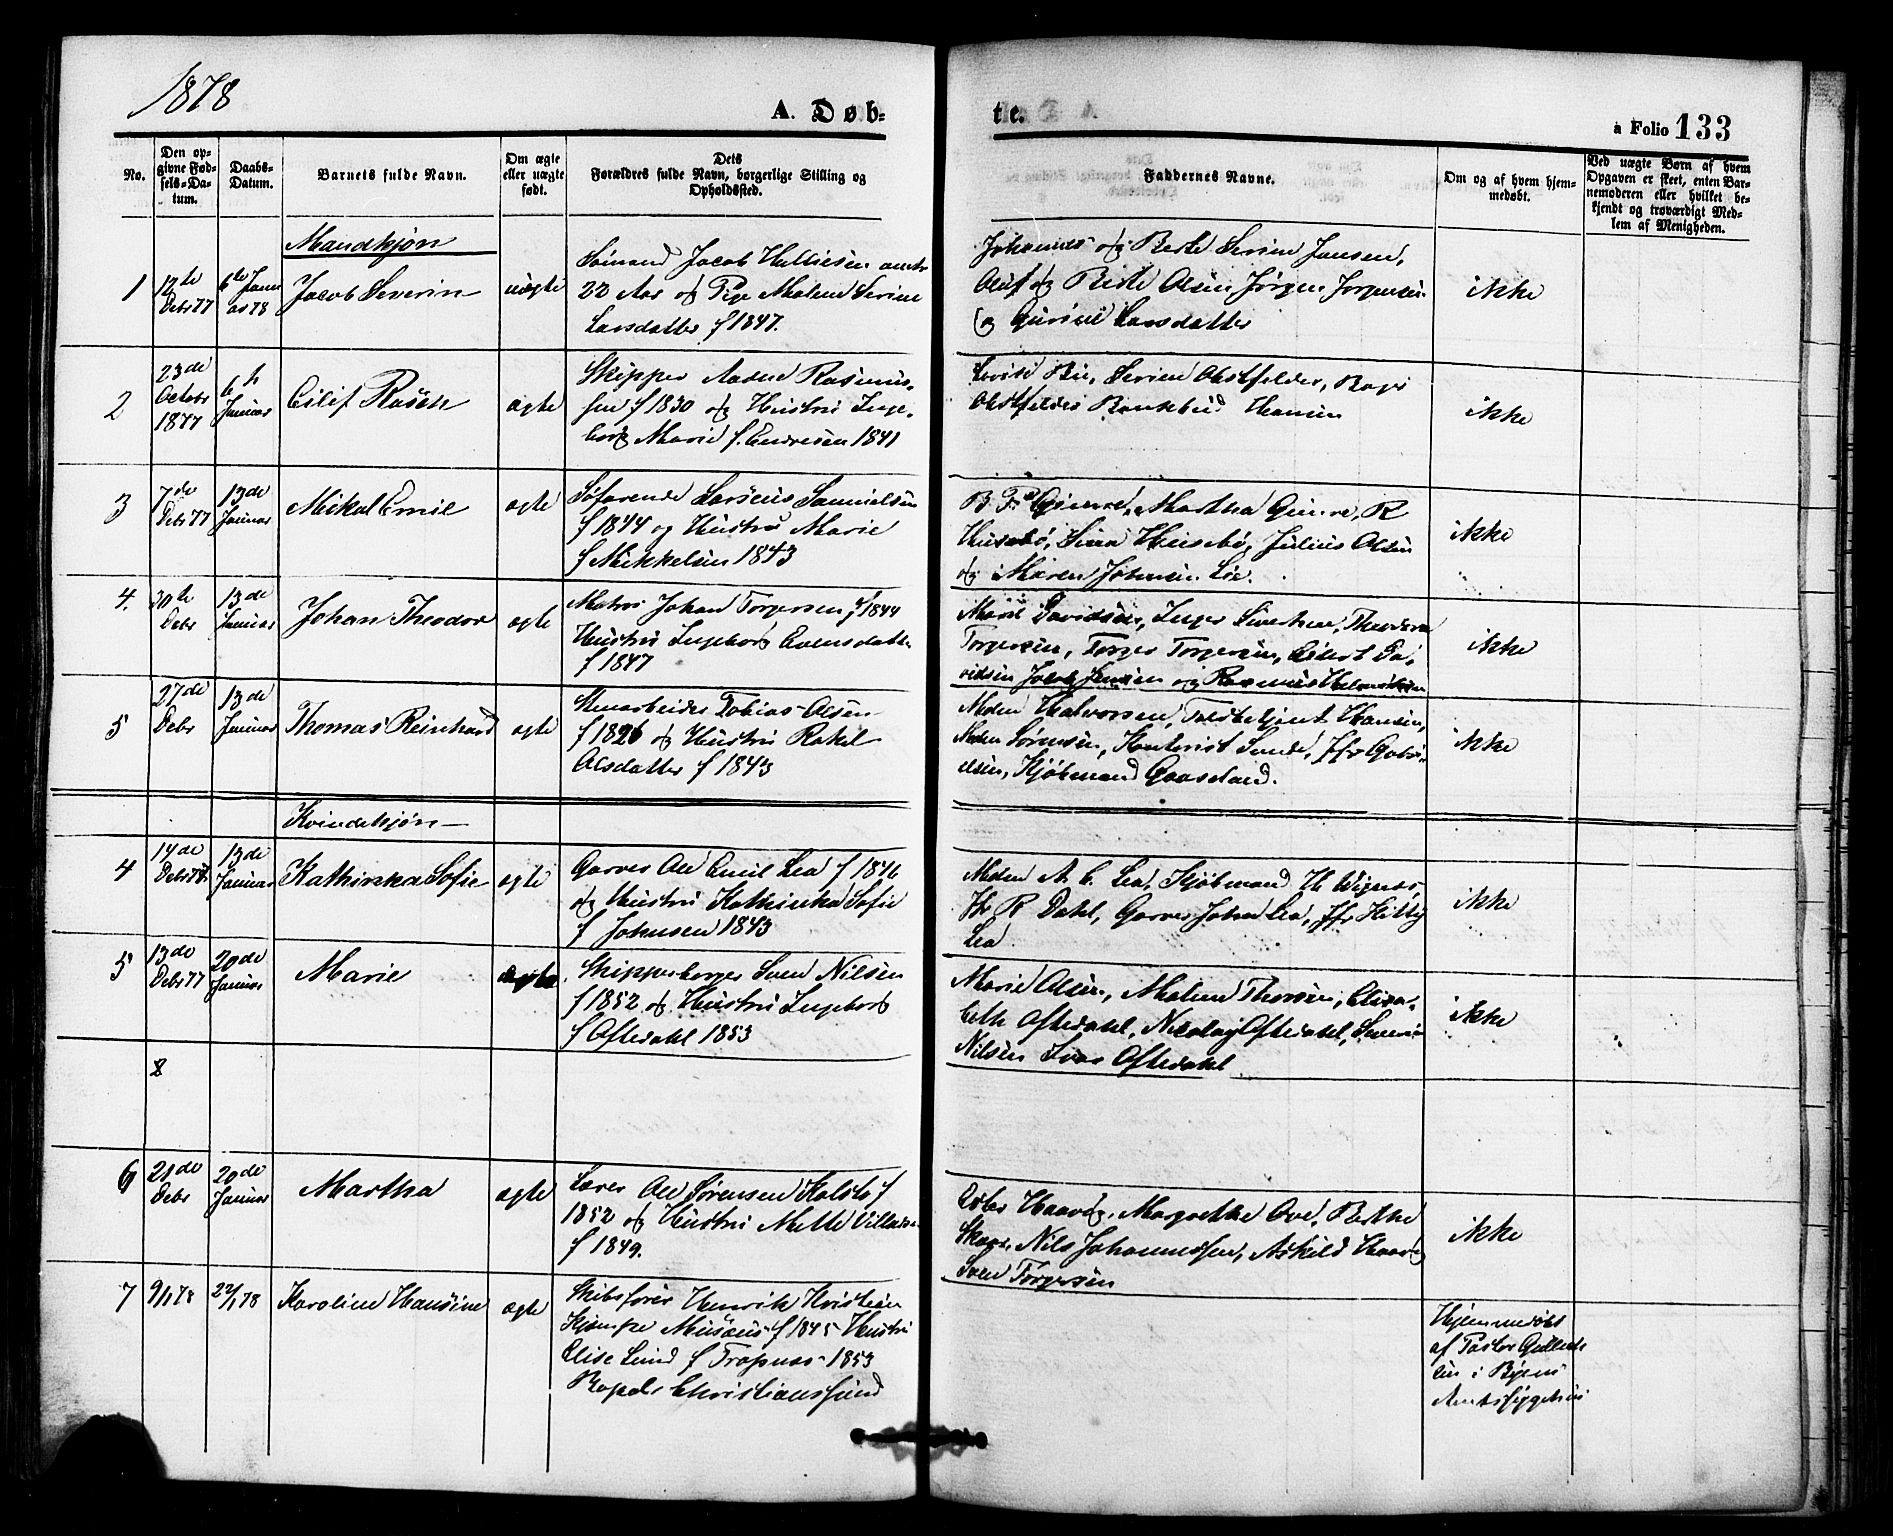 1878
A. Døb-
te.
a Folio 133
No.
Den op-
givne Fød-
sels-Da-
tum.
Daabs-
Datum.
Barnets fulde Navn.
Om ægte
eller uægte
født.
Dets
Forældres fulde Navn, borgerlige Stilling og
Opholdssted.
Faddernes Navne.
Om og af hvem hjem-
medøbt.
Ved uægte Børn af hvem
Opgaven er skeet, enten Bar-
nemoderen eller hvilket be-
kjendt og troværdigt Med-
lem af Menigheden.
Mandkjøn
1
12te
Debr 77
6te Janu
ar 78
Jacob Severin
uægte
Sømand Jacob
22 Aar og Pige Malene Serine
Larsdatter f 1847.
Johannes og Berte Serine Jansen,
Oluf og Berte Olsen Jørgen Jørgensen
og Larsdatter
ikke
2
23de
Octobr
1877
6te
Januar
Eilif Rosen
ægte
Skipper Aadne Rasmus-
sen f 1830 og Hustru Inge-
borg Marie f. Endresen 1841
Serine Obstfelder,
Obstfelder Hansen
ikke
3
7de
Debr 77
13de
Januar
Mikal Emil
ægte
Søfarende Samuelsen
f 1844 og Hustru Marie
f Mikkelsen 1843
Martha R
Husebø, Husebø, Julius Olsen
og Maren Johnsen
ikke
4.
30te
Debr
13de
Januar
Johan Theodor
ægte
Matros Johan Torgersen f 1844
Hustru Ingeborg Evensdatter
f 1847
Davidsen, Inger Sivertsen, Theodora
Torgersen, Torger Torgersen, Eilert Da-
vidsen Jacob Jensen og Rasmus
ikke
5
27de
Debr
13de
Januar
Thomas Reinhard
ægte
Stenarbeider Tobias Olsen
f 1826 og Hustru Rakel
Olsdatter f 1843
Mdm Halvorsen, Toldbetjent Hansen,
Mdm Sørensen, Kontorist Sunde, Jfr Gabri-
elsen, Kjøbmand Gaaseland.
ikke
Kvindekjøn
4
14de
Debr 77
13de
Januar
Kathinka Sofie
ægte
Garver Ole Emil Lea f 1846
og Hustru Kathinka Sofie
f Johnsen 1843
Mdm A. C. Lea, Kjøbmand Th Wignæs,
Hr R Dahl, Garver Johan Lea, Jfr Kitty
Lea
ikke
5
13de
Debr 77
20de
Januar
Marie
ægte
Skipperborger Sven Nilsen
f 1852 og Hustru Ingeborg
f Oftedahl 1853
Marie Olsen, Malene Thorsen, Elisa-
beth Oftedahl, Nicolay Oftedahl, Severin
Nilsen Ivar Oftedahl
ikke
8
6
21de
Debr
20de
Januar
Martha
ægte
Lærer Ole Sørensen Kalstø f
1852 og Hustru Mette
f 1849.
Margrethe Ove, Berthe
Skaar, Nils Johannessen, Askild
Sven Torgersen
ikke
7
9/1 78
22/1 78
Karoline Hansine
ægte
Skibsfører Henrik Kristian
Kjempe Musæus f 1845 Hustru
Elise Lund f Trapnæs 1853
Bopæl: Christianssund
Hjemmedøbt
af Pastor
sen i Byens